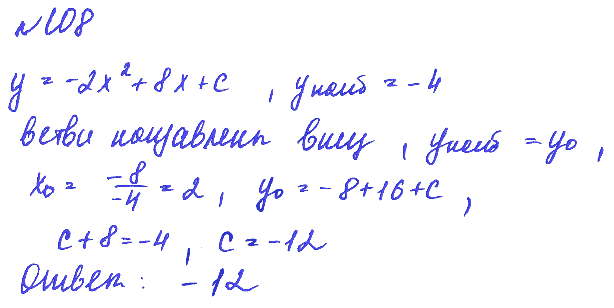 №108
y = -2x² + 8x + c , yнаиб = -4
ветви направлены вниз , yнаиб = y₀ ,
x₀ = -8/-4 = 2 , y₀ = -8+16+c ,
c + 8 = -4 , c = -12
Ответ: -12